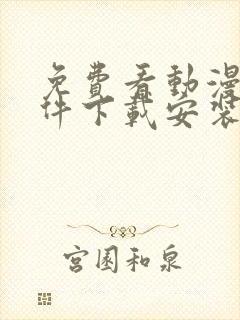 免費看動漫
件下載安裝
宮園和泉